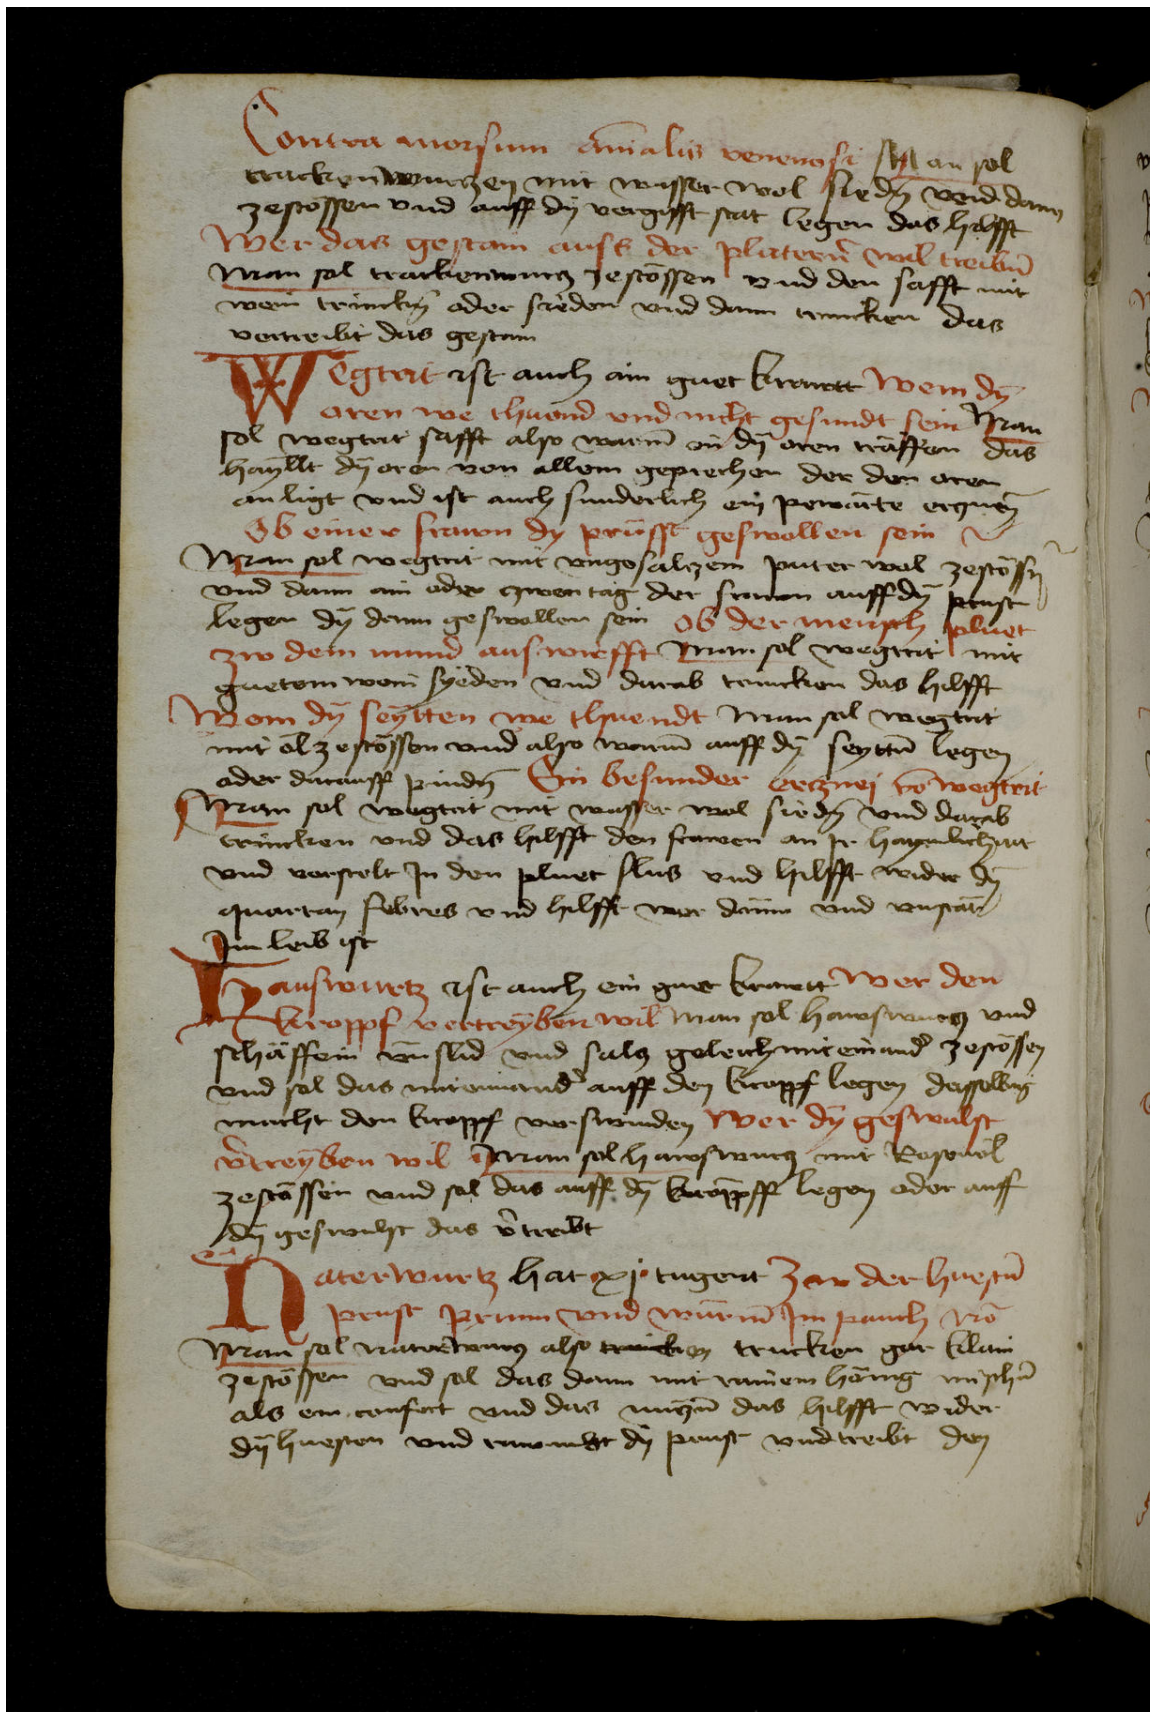 Contra morsum āīalis venenosi Man sol
tracken wurczen mit wasser wol siedn̄ vnd dann
zestössen vnd auff dÿ vergifft stat legen das hilfft
Wer das gestain auss der platern̄ wil treibn̄
Man sol trackenwurcz zestössen vnd den safft mit
wein trinckn̄ oder sieden vnd dann trincken das
vertreibt das gestain
Wegtrit ist auch ain guet krawtt Wem dÿ
oren we thuend vnd nicht gesundt sein Man
sol wegtrit safft also warm̄ in dÿ oren träffen das
haÿllt dÿ oren von allem geprechen der den oren
an ligt vnd ist auch sunderlich ein pewärte erczneÿ
Ob einer frawn dy prüsst geswollen sein
Man sol wegtrit mit vngesalczem puter wol zestössn̄
vnd dann ain oder zwen tag der frawn auff dÿ prust
legen dÿ dann geswollen sein Ob der mensch pluet
zw dem mund auswirfft Man sol wegtrit mit
guetem wein sÿeden vnd darab trincken das hilfft
Wem dÿ seÿtten we thuendt Man sol wegtrit
mit öl zestössen vnd also warm̄ auff dÿ seyttn̄ legen
oder darauff pindn̄ Ein besunder ercznei vō wegtrit
Man sol wegtrit mit wasser wol siedn̄ vnd darab
trincken vnd das hilfft den frawen an ir haymlichait
vnd verstelt In den pluet flus vnd hilfft wider dÿ
quartan febres vnd hilfft wer dünn vnd vnstät
Im leib ist
Hauswurtz ist auch ein guet krawtt Wer den
kroppf vertreÿben wil Man sol hawswurcz vnd
schäffein vnslid vnd salcz geleich miteinand̄ zestössen
vnd sol das miteinand̄ auff den kroppf legen dasselbig
macht den kroppf verswinden Wer dÿ geswulst
v̄treÿben wil Man sol hawswurcz mit Rosenöl
zestössen vnd sol das auff dÿ kröppff legen oder auff
dÿ geswulst das v̄treibt
Naterwurtz hat xj tugent Zw der huestn̄
prust prunn vnd würm̄ Im pauch Nō
Man sol naterwurcz also trincken trucken gar klain
zestössen vnd sol das dann mit rainem hönig mischn̄
als ein confect vnd das niczn̄ das hilfft wider
dÿ huesten vnd rawmbt dÿ prust vnd treibt den